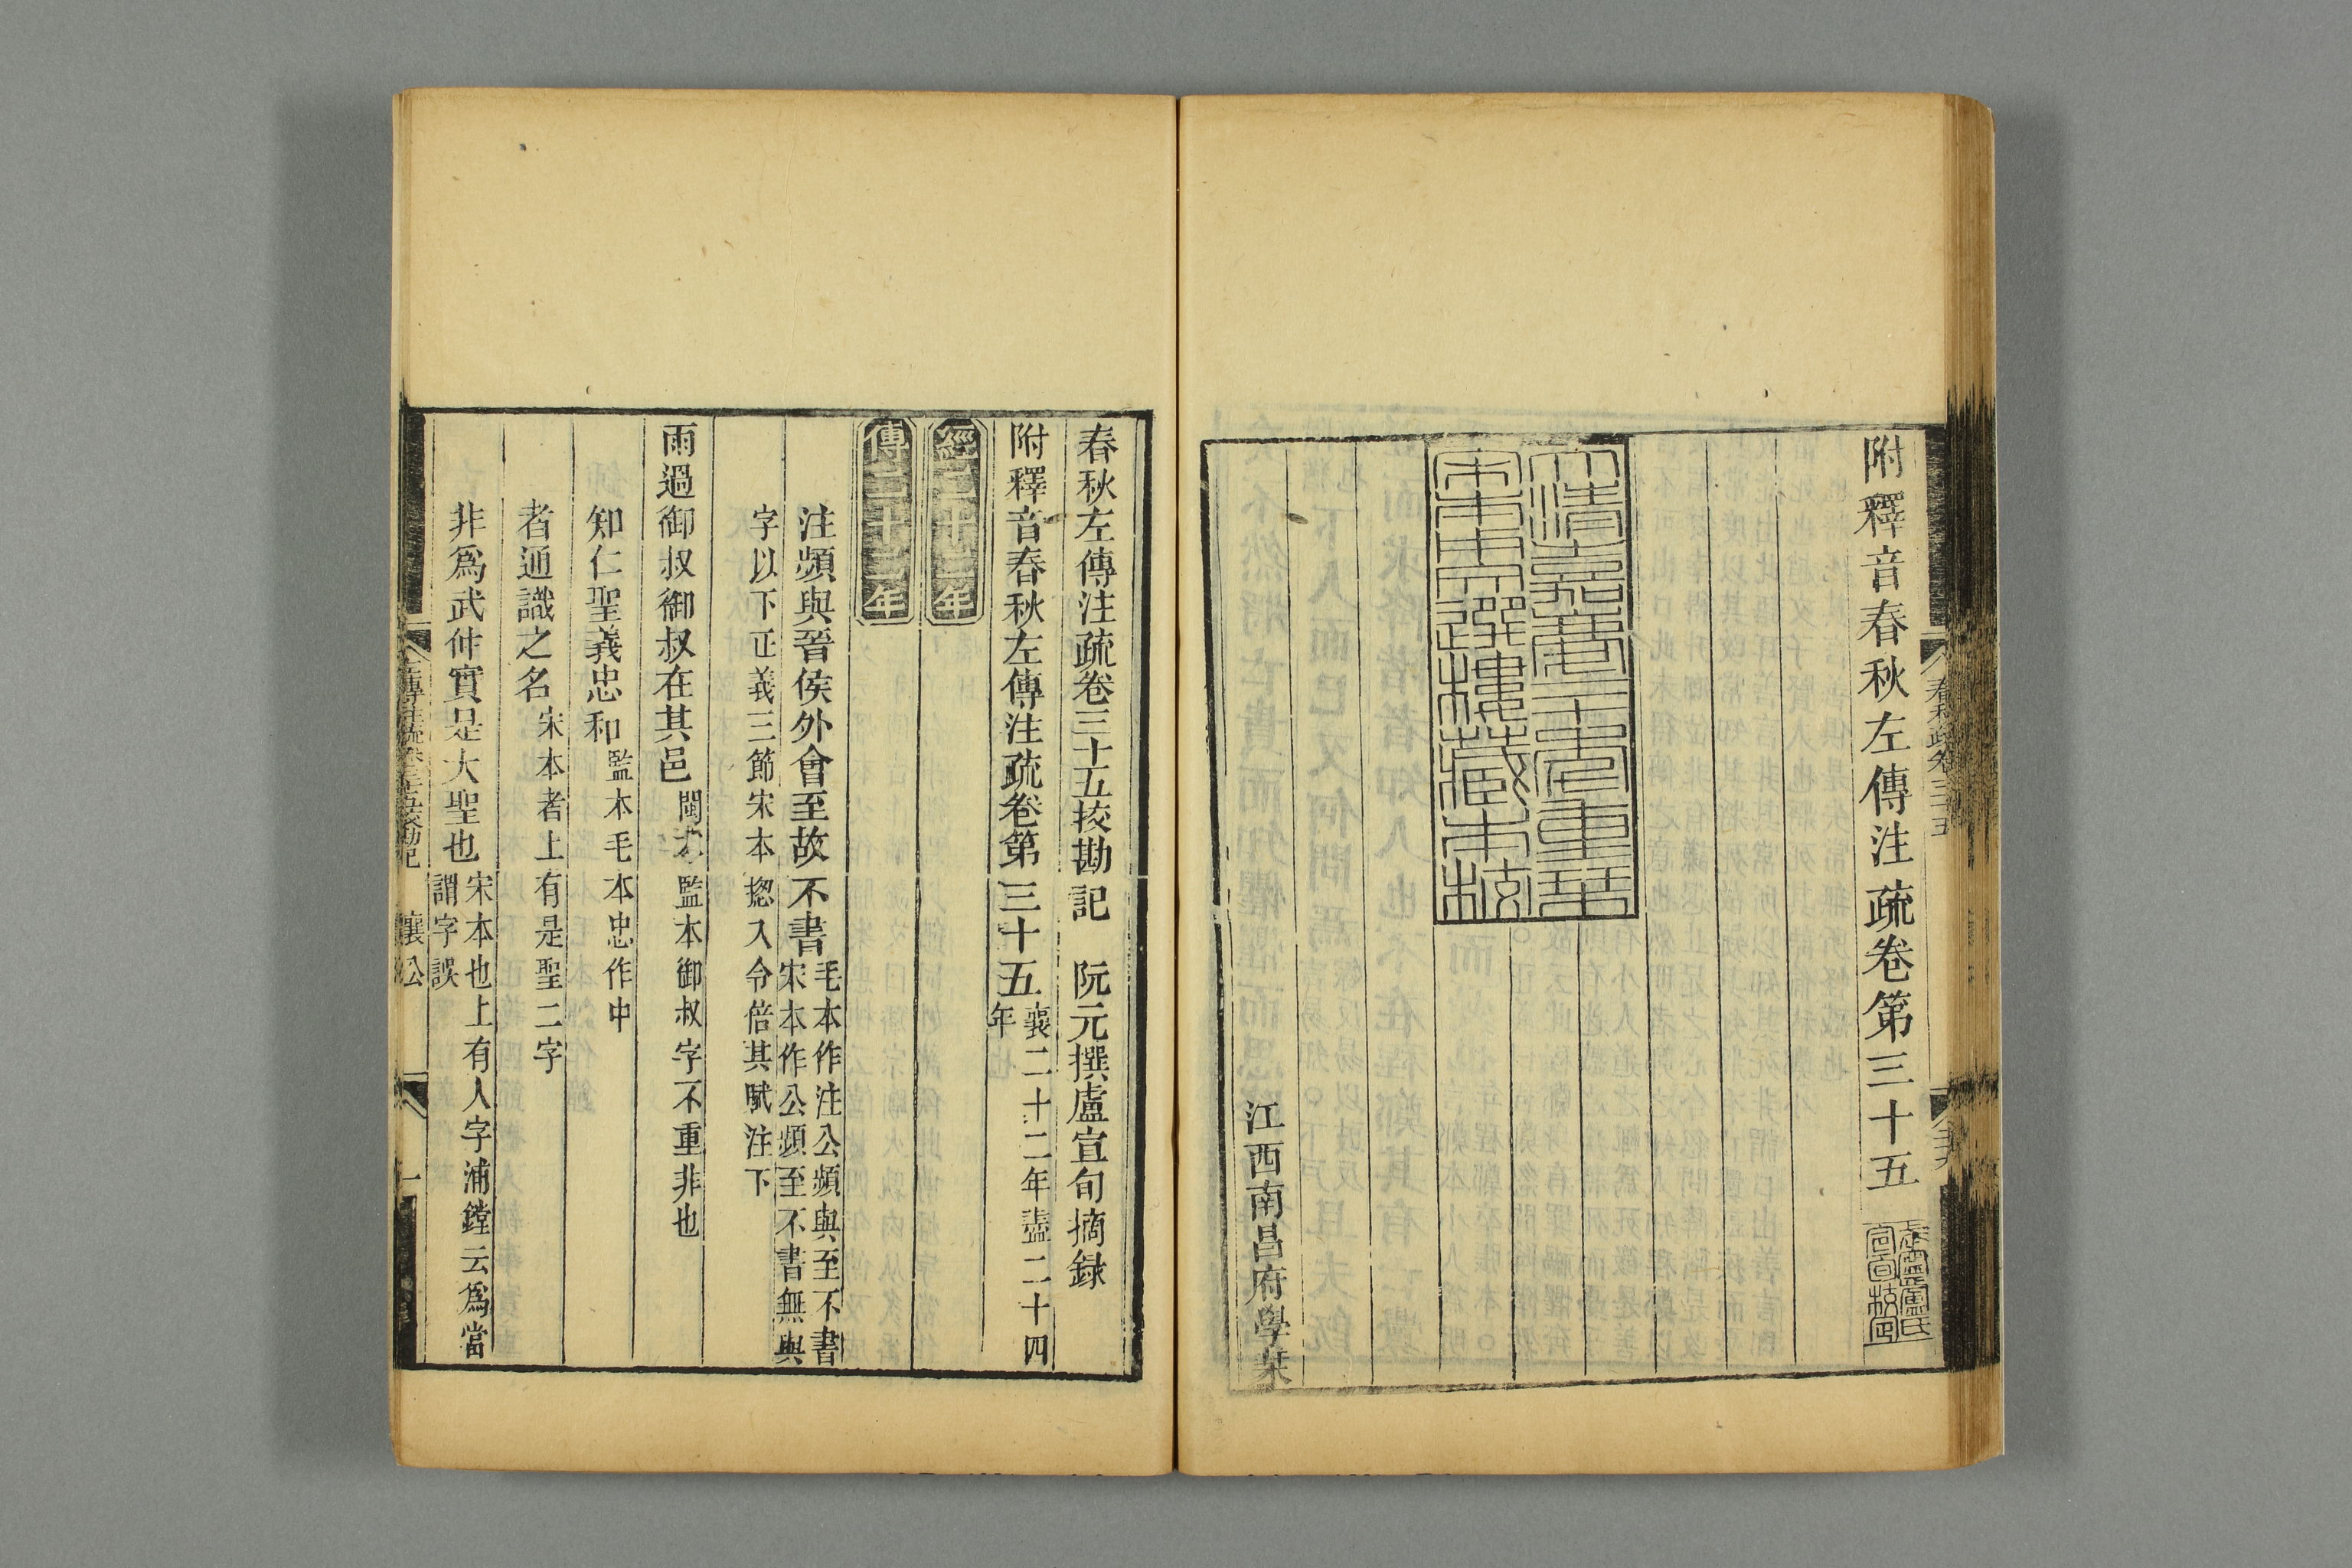 附釋音春秋左傳注疏卷第三十五
大清嘉慶二十年重栞
宋本文選樓藏本校
江西南昌府學栞
春秋左傳注疏卷三十五挍勘記 阮元撰盧宣旬摘錄
附釋音春秋左傳注疏卷第三十五 襄二十二年盡二十四年
經二十二年
傳二十二年
注頻與晉侯外會至故不書 毛本作注公頻與至不書宋本作公頻至不書無與
字以下正義三節宋本揔入令倍其賦注下
雨過御叔御叔在其邑 閩本監本御叔字不重非也
知仁聖義忠和 監本毛本忠作中
者通識之名 宋本者上有是聖二字
非爲武仲實是大聖也 宋本也上有人字浦鏜云爲當謂字誤
襄公 一